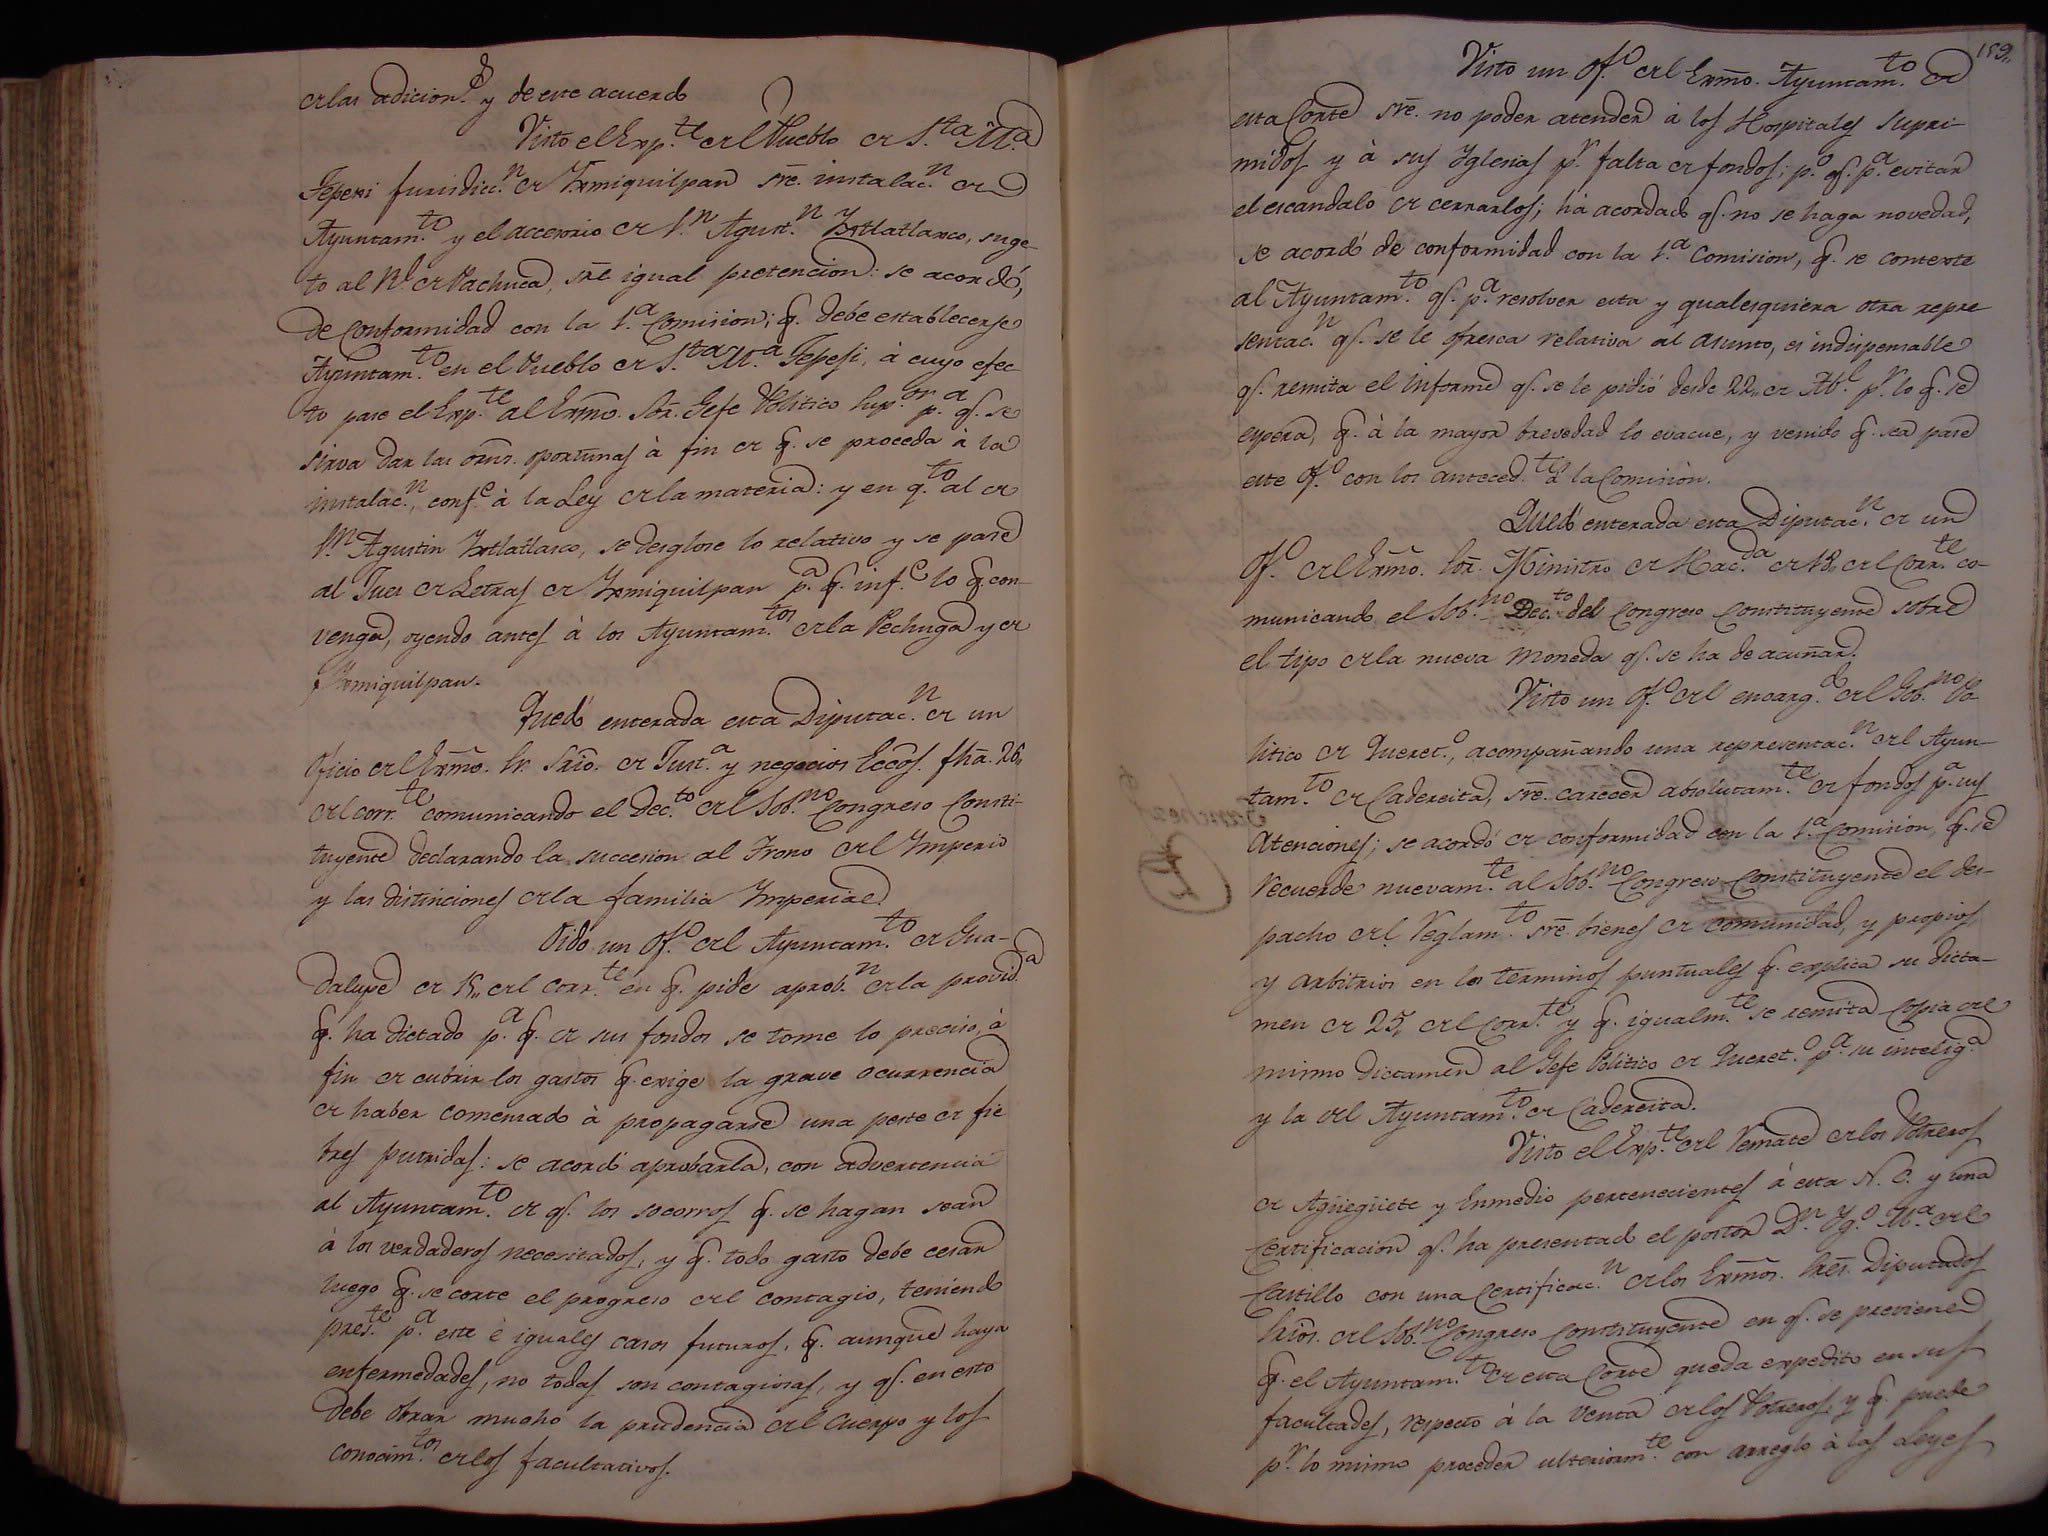 de las adicion.s y de este acuerdo
Visto el Exp.te del Pueblo de S.ta M.a
Tepexi Jurisdicc.n de Yxmiquilpan sre. instalac.n de
Ayuntam.to y el accesorio de S.n Agust.n Yxtlatlaxco, suge-
to al R.l de Pachuca, sre. igual pretencion: se acordó,
de conformidad con la 1.a Comision; q. debe establecerse
Ayuntam.to en el Pueblo de S.ta M.a Tepesi, à cuyo efec-
to pase el Exp.te al Exmo. Sor. Gefe Politico Sup.or p.a q. se
sirva dar las orns. oportunas à fin de q. se proceda à la
instalac.n, conf.e à la Ley de la materia: y en q.to al de
S.n Agustin Yxtlatlaxco, se desglose lo relativo y se pase
al Juez de Letras de Yxmiquilpan p.a q. inf.e lo q. con-
venga, oyendo antes à los Ayuntam.tos de la Pechuga y de
Yxmiquilpan.
Quedó enterada esta Diputac.n de un
Oficio del Exmo. Sr. Srio. de Just.a y negocios Eccos. fha. 26,,
del corr.te comunicando el Dec.to del Sob.no Congreso Consti-
tuyente declarando la succesion al Trono del Ymperio
y las distinciones de la familia Ymperial.
Oido un Of.o del Ayuntam.to de Gua-
dalupe de 15,, del corr.te en q. pide aprob.n de la provid.a
q. ha dictado p.a q. de sus fondos se tome lo preciso, à
fin de cubrir los gastos q. exige la grave ocurrencia
de haber comenzado à propagarse una peste de fie
bres putridas: se acordó aprobarla, con advertencia
al Ayuntam.to de q. los socorros q. se hagan sean
à los verdaderos necesitados, y q. todo gasto debe cesar
luego q. se corte el progreso del contagio, teniendo
pres.te p.a este è iguales casos futuros, q. aunque haya
enfermedades, no todas son contagiosas, y q. en esto
debe obrar mucho la prudencia del Cuerpo y los
conocim.tos de los facultativos.
159,,
Visto un Of.o del Exmo. Ayuntam.to de
esta Corte sre. no poder atender à los Hospitales supri-
midos y à sus Yglesias p.r falta de fondos; p.o q. p.a evitar
el escandalo de cerrarlos; ha acordado q. no se haga novedad,
se acordó de conformidad con la 1.a Comision, q. se conteste
al Ayuntam.to q. p.a resolver esta y qualesquiera otra repre
sentac.n q. se le ofresca relativa al asunto, es indispensable
q. remita el informe q. se le pidió desde 22,, de Ab.l p.r lo q. se
espera, q. à la mayor brevedad lo evacue, y venido q. sea pase
este Of.o con los anteced.tes à la Comision.
Quedó enterada esta Diputac.n de un
Of.o del Exmo. Sor. Ministro de Hac.da de 18,, del Corr.te co-
municando el Sob.no Dec.to del Congreso Constituyente sobre
el tipo de la nueva moneda q. se ha de acuñar.
Visto un Of.o del encarg.do del Gob.no Po
litico de Queret.o, acompañando una representac.n del Ayun-
tam.to de Cadereita, sre. carecer absolutam.te de fondos p.a sus
Atenciones; se acordó de conformidad con la 1.a Comision, q. se
recuerde nuevam.te al Sob.no Congreso Constituyente el des-
pacho del Reglam.to sre. bienes de comunidad, y propios
y arbitrios en los terminos puntuales q. explica su dicta-
men de 25,, del Corr.te y q. igualm.te se remita Copia del
mismo dictamen al Gefe Politico de Queret.o p.a su intelig.a
y la del Ayuntam.to de Cadereita.
Visto el Exp.te del Remate de los Potreros
de Agüegüete y Enmedio pertenecientes à esta N. C. y una
Certificacion q. ha presentado el postor D.n Yg.o M.a del
Castillo con una Certificac.n de los Exmos. Sres. Diputados
Srios. del Sob.no Congreso Constituyente en q. se previene
q. el Ayuntam.to de esta Corte queda expedito en sus
facultades, respecto à la venta de los Potreros, y q. puede
p.r lo mismo proceder ulteriorm.te con arreglo à las Leyes